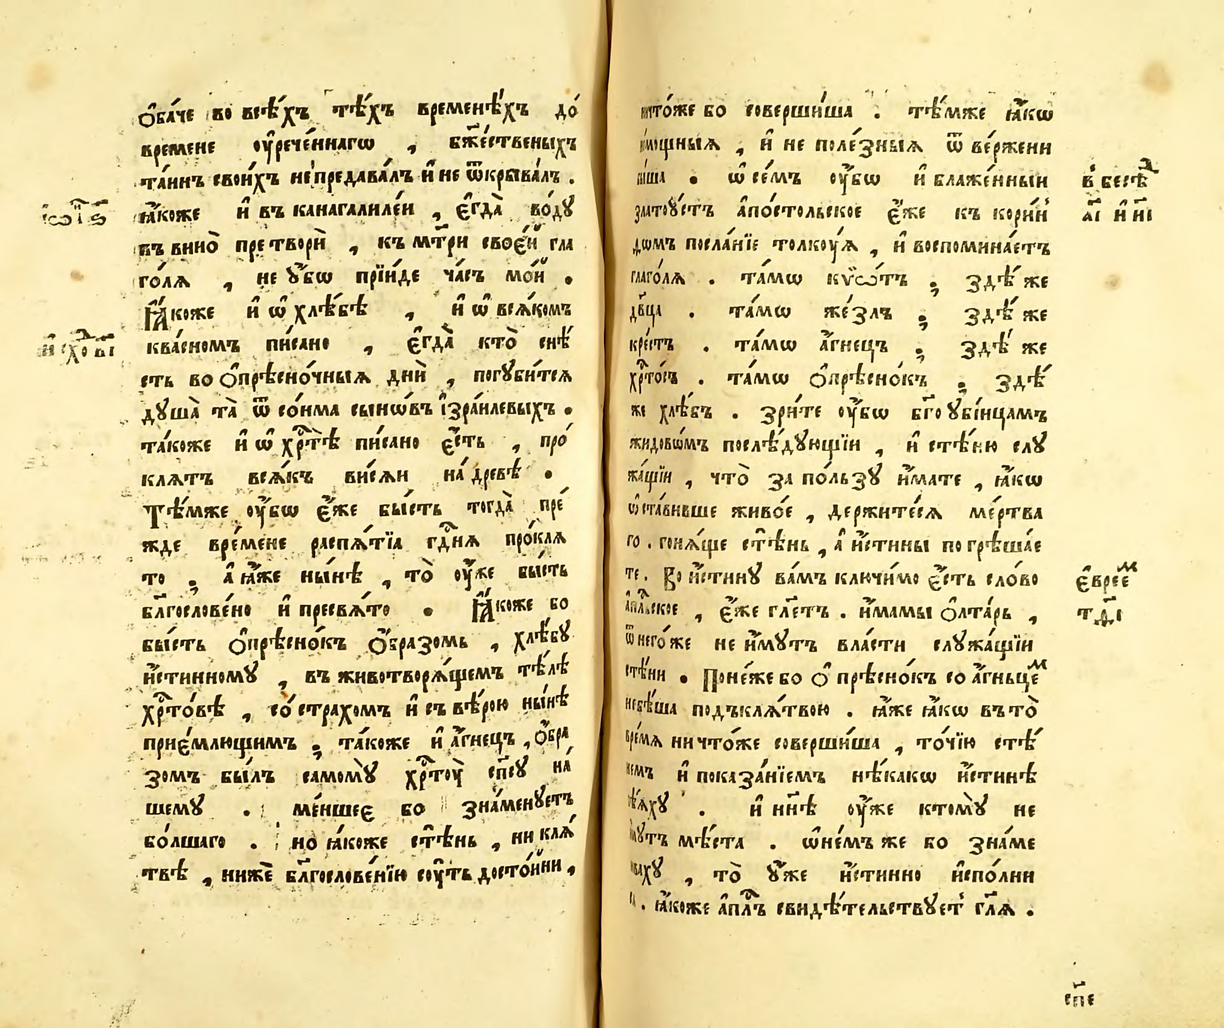 ѻ҆ба́че во всѣ́хъ тѣ́хъ временѣ́хъ до
времене ᲂу҆рече́ннагѡ , бж҃ественыхъ
та́инъ свои́хъ не преподава́лъ и҆ не ѿкрыва́лъ .
ꙗ҆́коже и҆ въ канагалиле́и , є҆гда̀ во́дꙋ
въ вино̀ претворѝ , къ мт҃ри свое́й гла
го́лѧ , не ᲂу҆̀бѡ прїи́де ча́съ мо́й .
Ꙗ҆́коже и҆ ѡ҆ хлѣ́бѣ , и҆ ѡ҆ всѧ́комъ
ква́сномъ пи́сано , є҆гда̀ кто̀ снѣ́
сть во ѻ҆прѣсно́чныѧ днѝ , погꙋби́тсѧ
дꙋша̀ та̀ ѿ со́нма сыно́въ і҆зра́илевыхъ .
та́коже и҆ ѡ҆ хрⷭ҇тѣ̀ пи́сано є҆́сть , про́
клѧтъ всѧ́къ висѧ́й на́ древѣ .
Тѣ́мже ᲂу҆́бѡ є҆́же бы́сть тогда̀ пре́
жде вре́мене распѧ́тїѧ гдⷭ҇нѧ про́клѧ
то , а҆ ꙗ҆́же ны́нѣ , то̀ ᲂу҆́же бы́сть
бл҃гослове́но и҆ пресвѧ́то . Ꙗ҆́коже бо
бы́сть ѻ҆прѣсно́къ ѻ҆́бразомъ , хлѣ́бꙋ
и҆́стинномꙋ , въ животворѧ́щемъ тѣ́лѣ
хрⷭ҇то́вѣ , со́ страхомъ и҆ съ вѣ́рою ны́нѣ
прїе́млющимъ , та́коже и҆ а҆́гнецъ , ѻ҆́бра
зомъ бы́лъ самомꙋ̀ хрⷭ҇тꙋ̀ сп҃сꙋ на́
шемꙋ . ме́ншее бо зна́менꙋетъ
бо́лшаго . но ꙗ҆́коже стѣ́нь , ни клѧ́
твѣ , нижѐ бл҃гослове́нїю сꙋ́ть досто́йни ,
и҆схо вı҃
ничто́же бо соверши́ша . тѣ́мже ꙗ҆́кѡ
не́мощныѧ , и҆ не поле́зныѧ ѿве́ржени
бы́ша . ѡ҆ се́мъ ᲂу҆́бѡ и҆ блаже́нныи
златоꙋ́стъ а҆по́стольское є҆́же къ кори́н
ѳѧномъ посла́нїе толкꙋ́ѧ , и҆ воспомина́етъ
глаго́лѧ . та́мѡ кїѵѡ́тъ ; здѣ́ же
дв҃ца . та́мѡ же́злъ ; здѣ́ же
крⷭ҇тъ . та́мѡ а҆́гнецъ ; здѣ́ же
хрⷭ҇то́съ . та́мѡ ѻ҆прѣсно́къ ; здѣ́
же хлѣ́бъ . зри́те ᲂу҆́бѡ бг҃оꙋбі́йцамъ
жидовѡ́мъ послѣ́дꙋющїи , и҆ стѣ́ню слꙋ
жа́щїи , что̀ за по́льзꙋ и҆́мате , ꙗ҆́кѡ
ѡ҆ста́вивше живо́е , держите́сѧ ме́ртва
го . гонѧ́ще стѣ́нь , а҆ и҆́стины погрѣша́е
те . Во и҆́стинꙋ ва́мъ ключи́мо є҆́сть сло́во
а҆пⷭ҇льское , є҆́же гл҃етъ . и҆́мамы ѻ҆лта́рь ,
ѿ него́же не и҆́мꙋтъ вла́сти слꙋжа́щїи
стѣ́ни . Поне́же бо ѻ҆прѣсно́къ со а҆́гньцемъ
не бѣ́ша под̾ клѧ́твою . ꙗ҆́же ꙗ҆́кѡ въ то̀
вре́мѧ ничто́же соверши́ша , то́чїю стѣ́
немъ и҆ показа́нїемъ нѣ́какѡ и҆́стинѣ
бѣ́ѧхꙋ . и҆ нн҃ѣ ᲂу҆́же ктомꙋ̀ не
и҆́мꙋтъ мѣ́ста . ѡ҆ не́мъ же бо зна́ме
новахꙋ , то̀ ᲂу҆́же и҆́стинно и҆спо́лни
. ꙗ҆́коже а҆пⷭ҇лъ свидѣ́тельствꙋетъ гл҃ѧ .
в҃ бесѣⷣ
а҃і и҆ и҃і
є҆вре́ѡⷨ
сп҃е